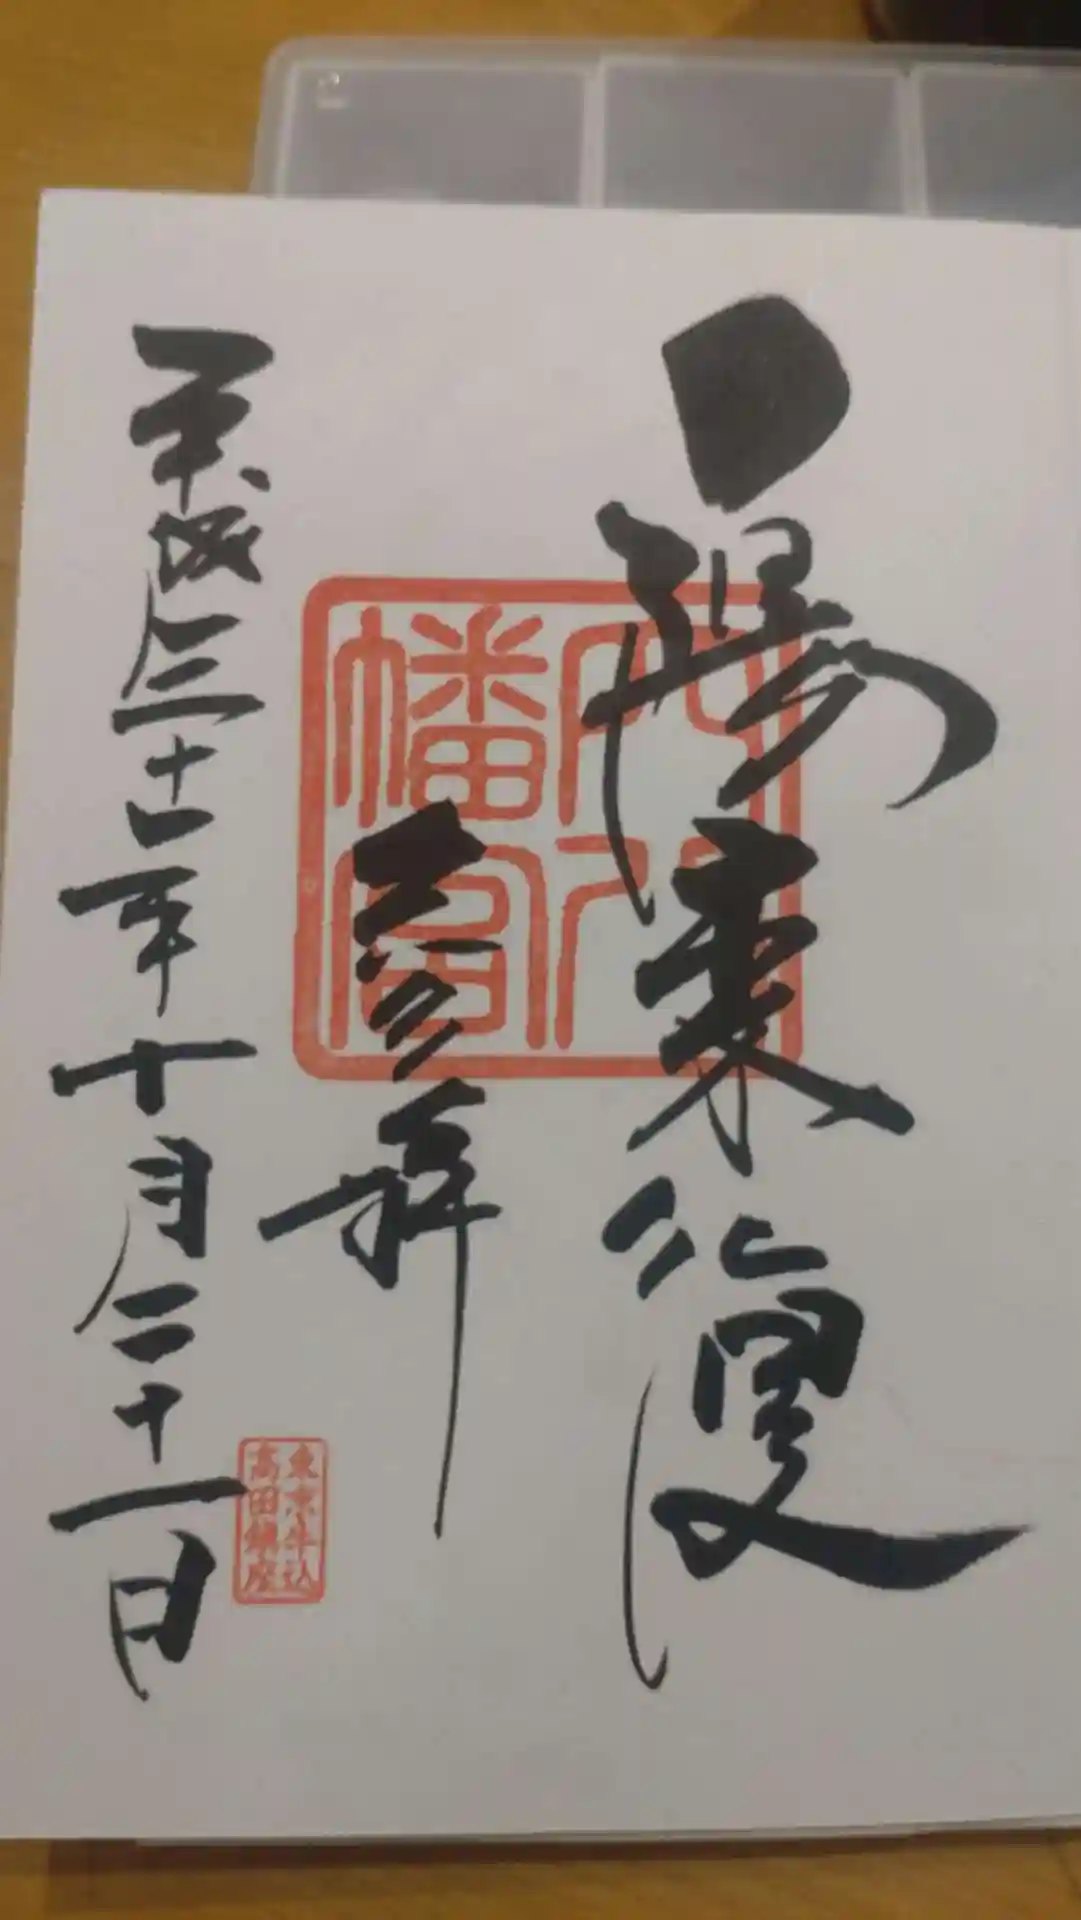 一陽来復
穴八幡宮
参拝
東京牛込
高田鎮座
平成三十年十月二十一日